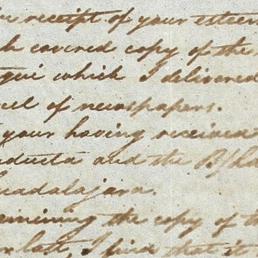 receipt of your esteem
covered copy of the
which I delivered
of newspapers.
your having received
and the B/La
uadalajara.
amining the copy of t
last, I find that it